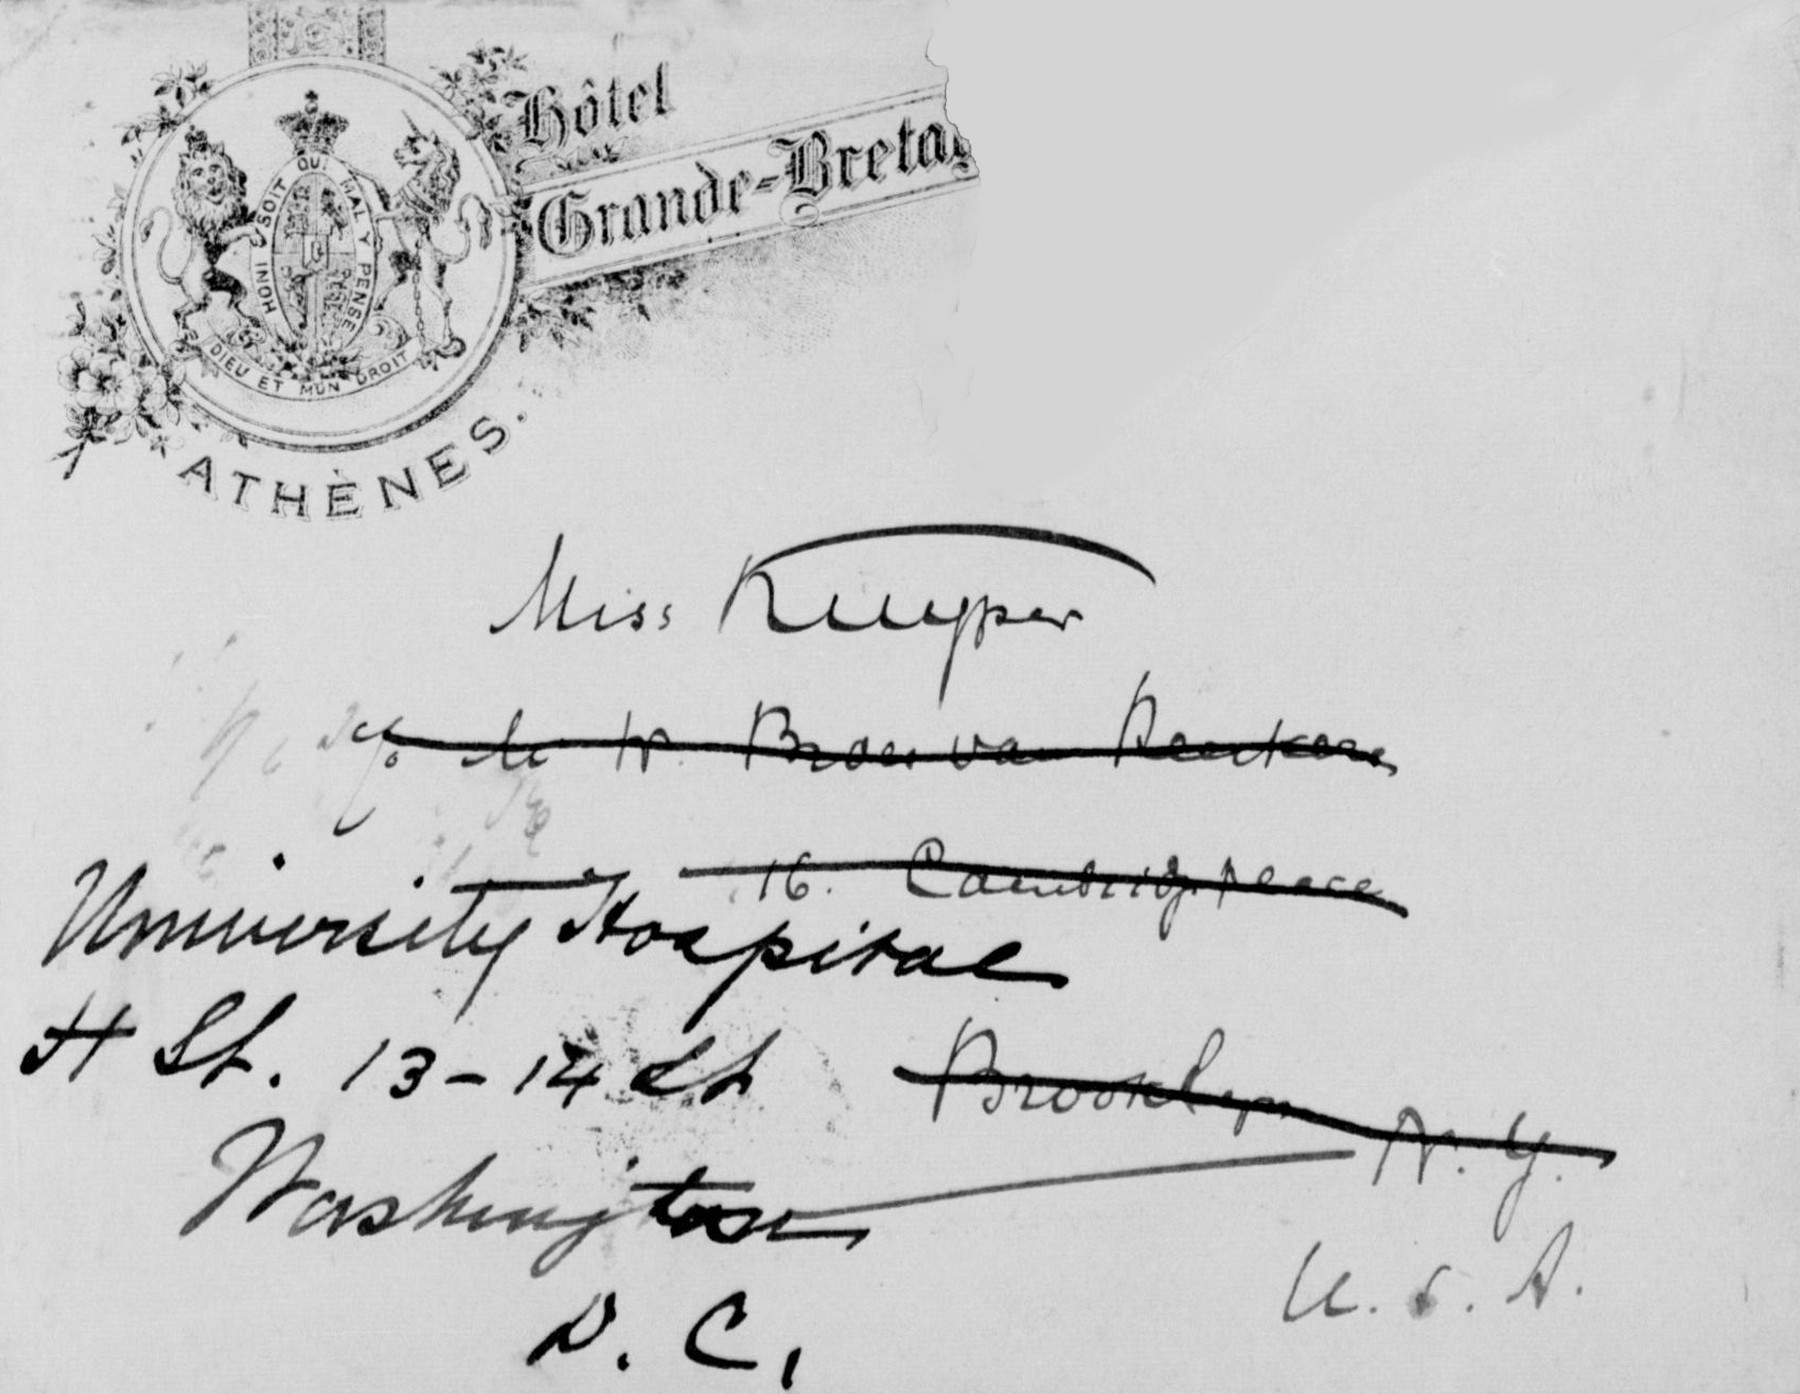 Hôtel
Grande-Bretag
HONI SOIT QUI MAL Y PENSE
DIEU ET MON DROIT
ATHÈNES.
Miss Kuyper
W. Broes van
16. Cambridge place
University Hospital
H St. 13-14 St
Brooklyn N.Y.
Washington
U.S.A.
D.C.